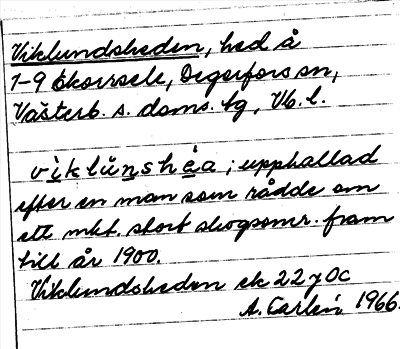 Viklundsheden, hed å
1-9 Ekorrsele, Degerfors sn,
Västerb. s. doms. tg, Vb. l.
viklŭnshèa; upphallad
efter en man som rådde om
ett mkt. stort skogsomr. fram
till år 1900.
Viklundsheden ek 22 y 0c
A. Carlén 1966.